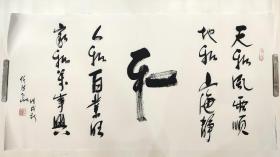 天和风雨顺
地和山海静
和
人和百业旺
家和万事兴